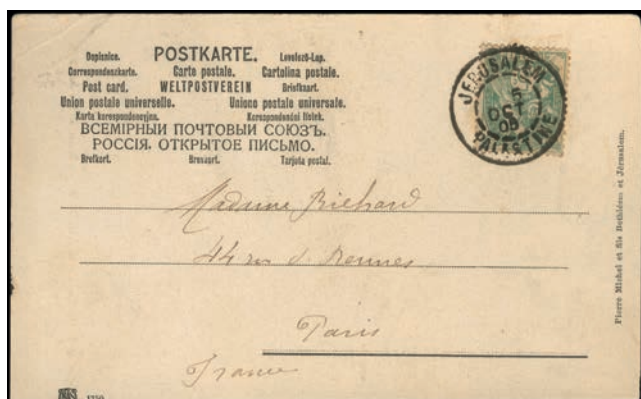 POSTKARTE.
Dopisnice. Levelező-Lap.
Correspondenzkarte. Carte postale. Cartolina postale.
Post card. WELTPOSTVEREIN Briefkaart.
Union postale universelle. Unione postale universale.
Karta korespondencyjna. Korespondenčni listek.
ВСЕМІРНЫЙ ПОЧТОВЫЙ СОЮЗЪ.
РОССІЯ. ОТКРЫТОЕ ПИСЬМО.
Brefkort. Brevkaart. Tarjeta postal.
JERUSALEM
5
OCT
05
PALASTINE
Madame Richard
44 rue d. Rennes
Paris
France
Pierre Michel et fils Bethléem et Jérusalem.